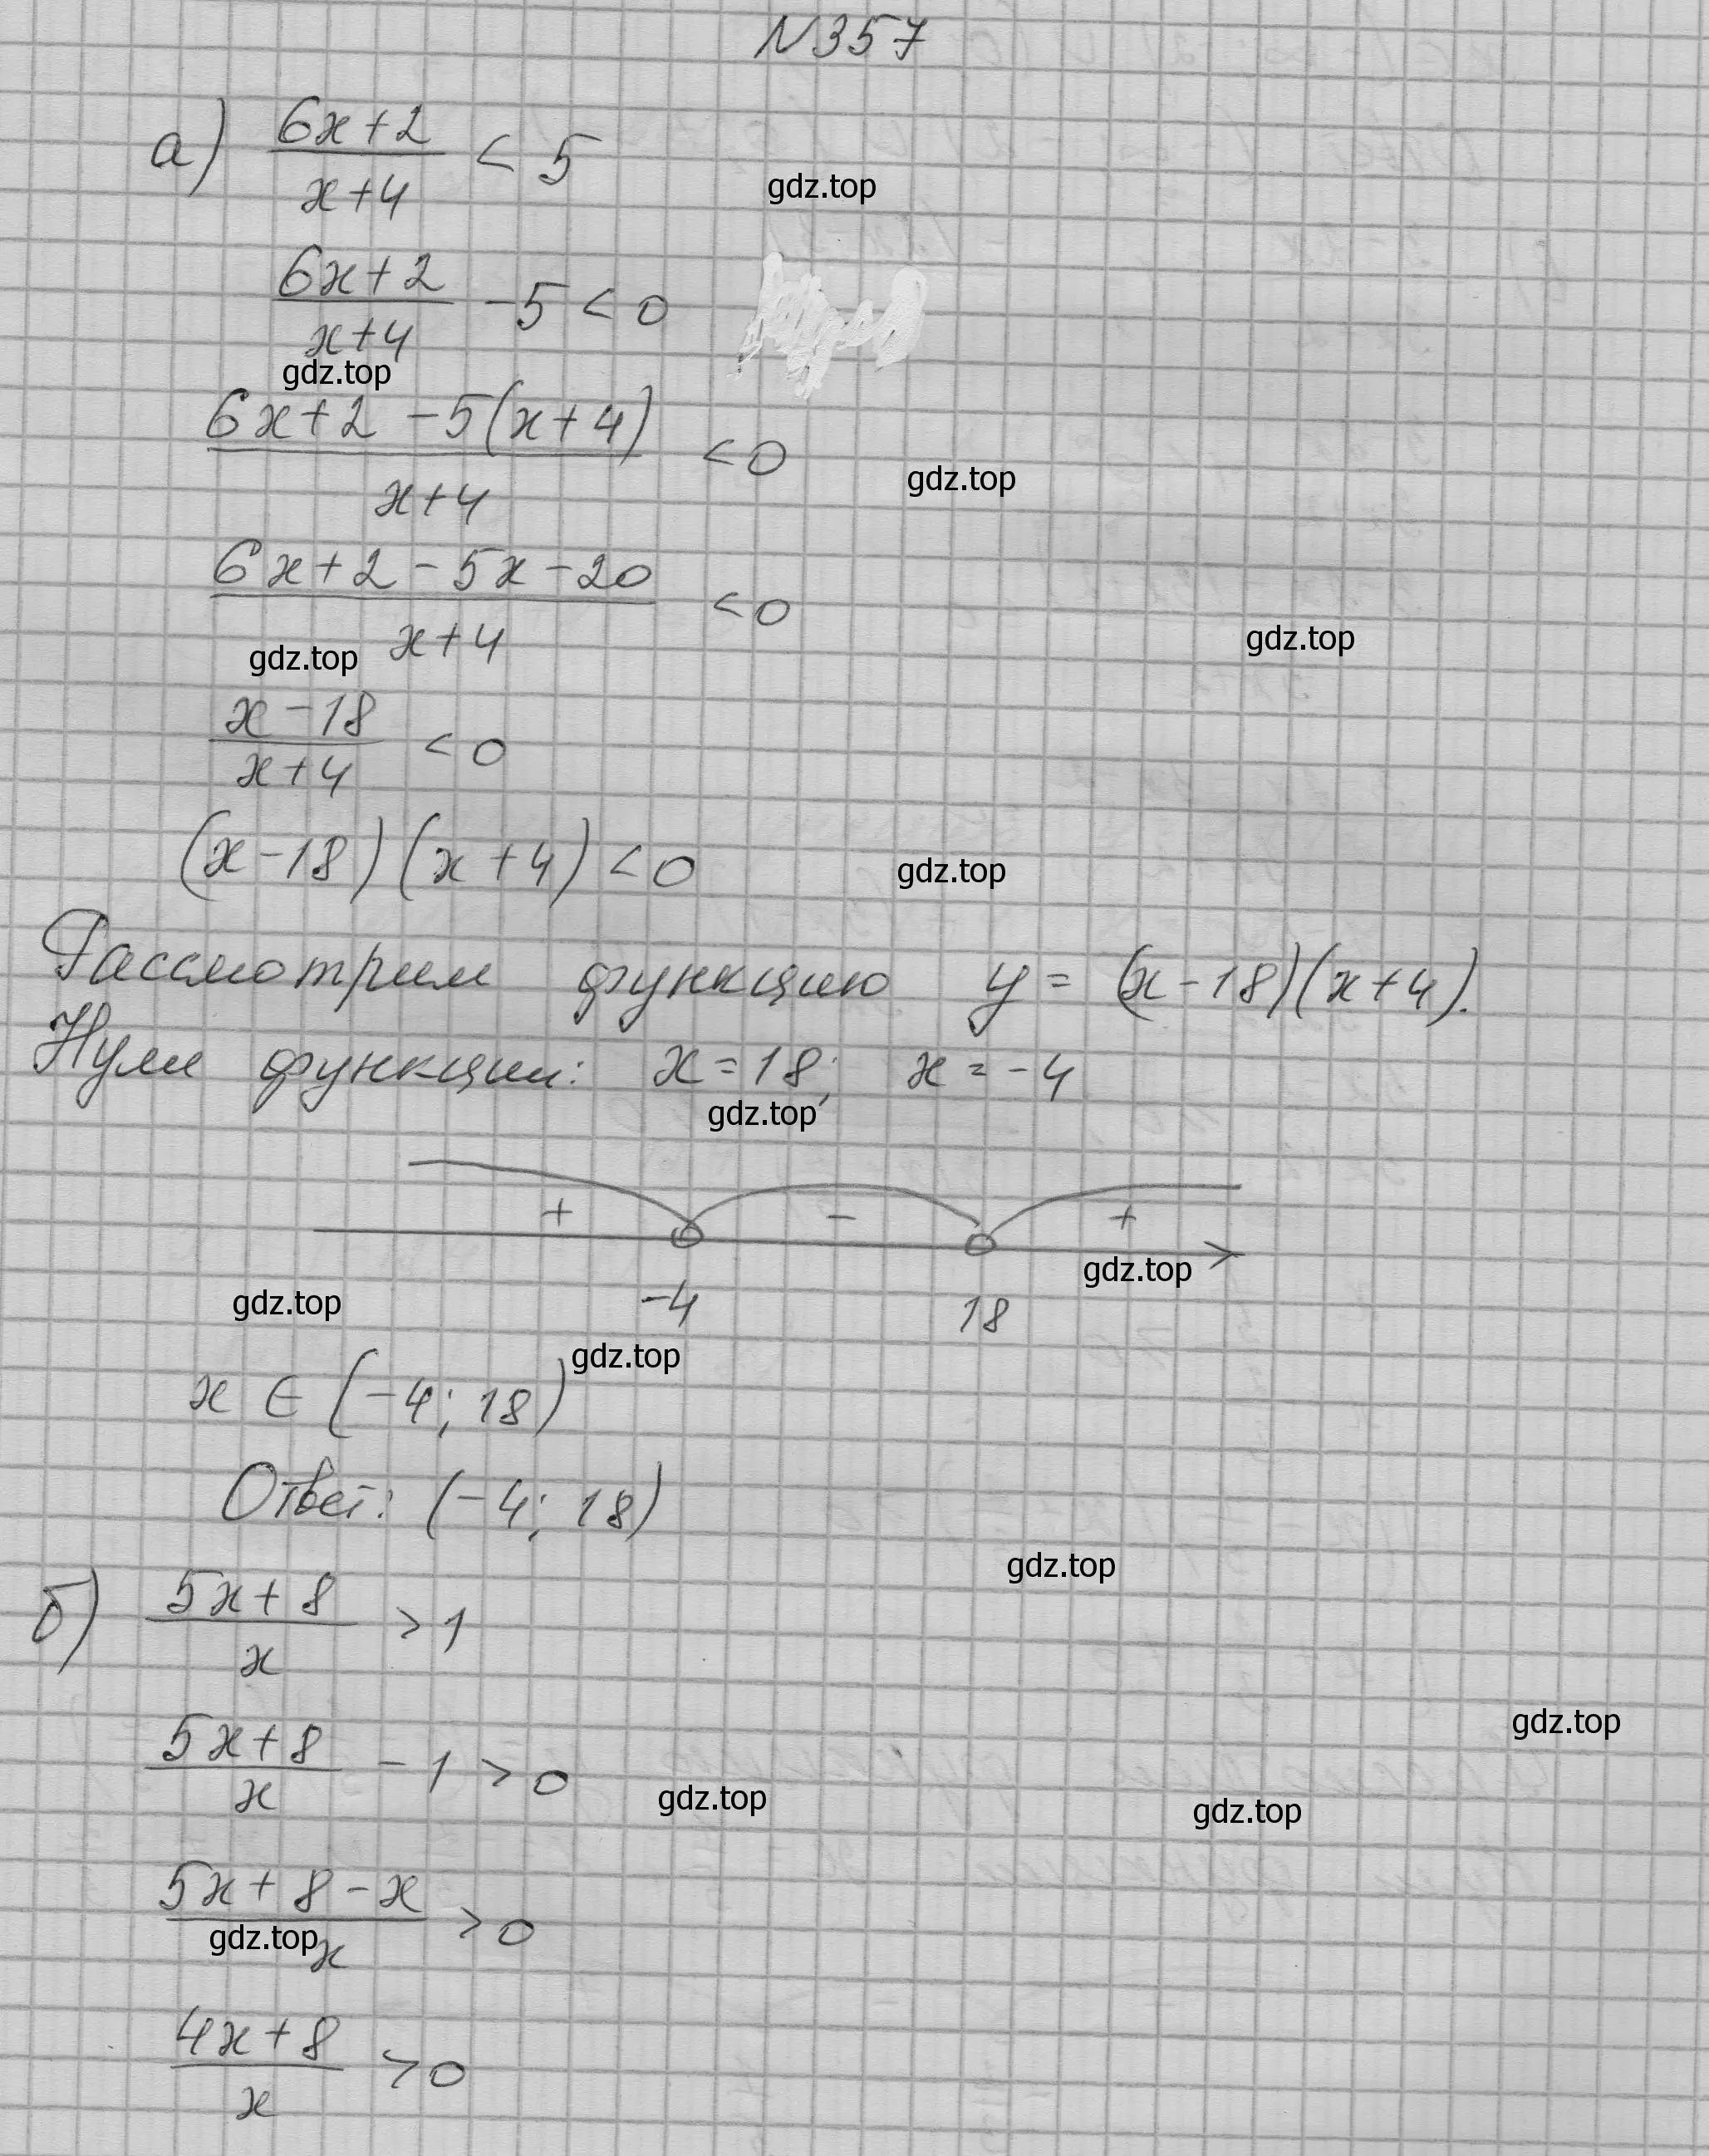 N357
а) (6x+2)/(x+4) < 5
gdz.top
(6x+2)/(x+4) -5 < 0
gdz.top
(6x+2-5(x+4))/(x+4) < 0
gdz.top
(6x+2-5x-20)/(x+4) < 0
gdz.top
gdz.top
(x-18)/(x+4) < 0
(x-18)(x+4) < 0
gdz.top
Рассмотрим функцию y = (x-18)(x+4).
Нули функции: x=18; x=-4
gdz.top
+ - +
gdz.top
gdz.top
-4 18
gdz.top
x ∈ (-4; 18)
Ответ: (-4; 18)
gdz.top
б) (5x+8)/x > 1
gdz.top
(5x+8)/x - 1 > 0
gdz.top
gdz.top
(5x+8-x)/x > 0
gdz.top
(4x+8)/x > 0